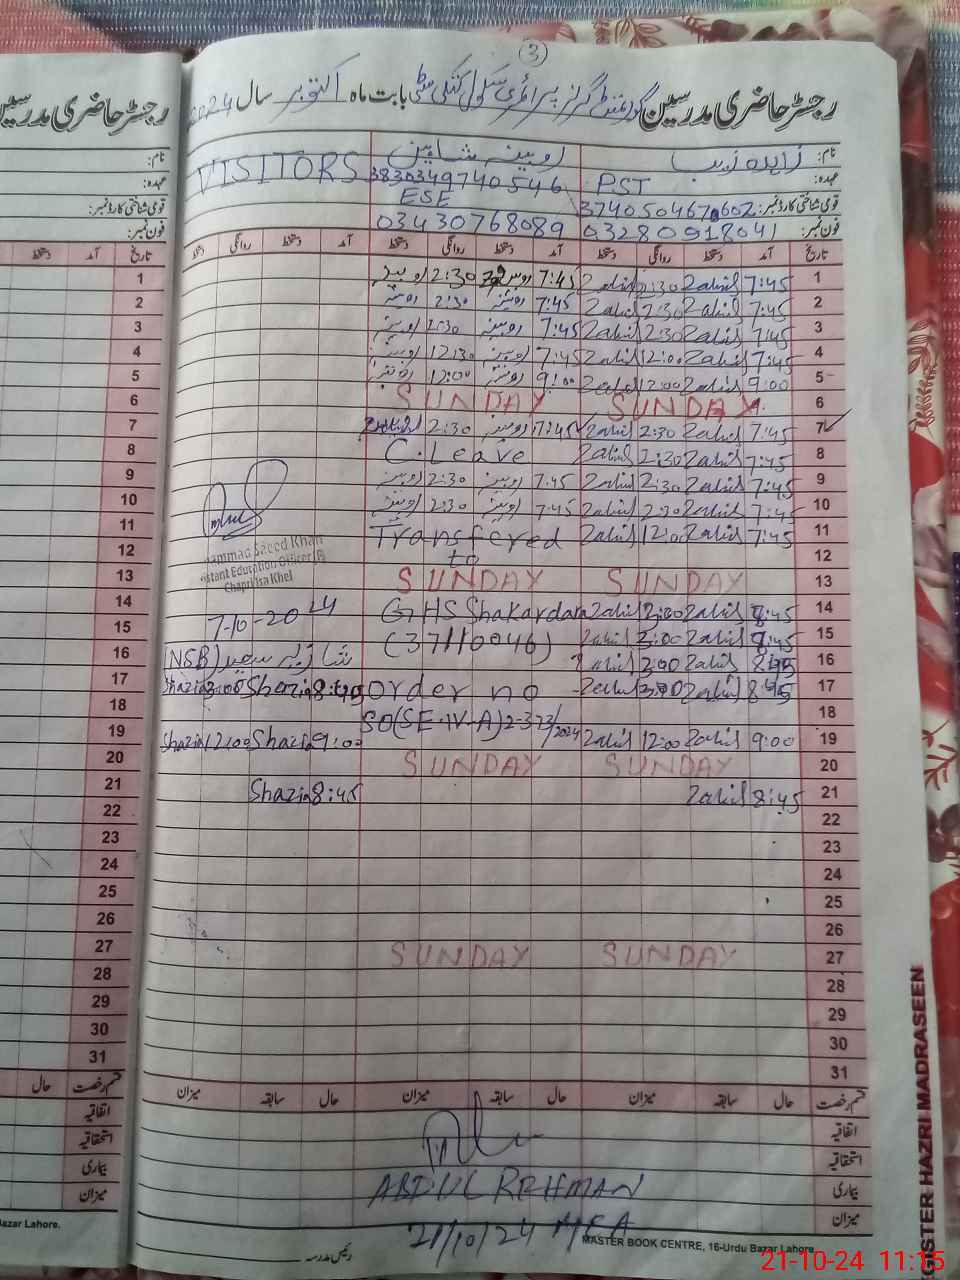 3
رجسٹر حاضری مدرسین گورنمنٹ گرلز پرائمری سکول بابت ماہ اکتوبر سال 2024
نام: زاہدہ زیب روبینہ شاہین VISITORS
عہدہ: PST 3830349740546
قومی شناختی کارڈ نمبر: ESE
فون نمبر: 03280918041 03430768089
تاریخ آمد دستخط روانگی دستخط آمد دستخط روانگی دستخط آمد دستخط روانگی دستخط
1 7:45 Zahid 2:30 Zahid 7:45 2:30 روبینہ
2 7:45 Zahid 2:30 Zahid 7:45 روبینہ 2:30 روبینہ
3 7:45 Zahid 2:30 Zahid 7:45 روبینہ 2:30 روبینہ
4 7:45 Zahid 12:00 Zahid 7:45 روبینہ 12:30 روبینہ
5 9:00 Zahid 12:00 Zahid 9:00 روبینہ 12:00 روبینہ
6 SUNDAY SUNDAY
7 7:45 Zahid 2:30 Zahid 7:45 روبینہ 2:30
8 7:45 Zahid 2:30 Zahid C.Leave
9 7:45 Zahid 2:30 Zahid 7:45 روبینہ 2:30 روبینہ
10 7:45 Zahid 2:30 Zahid 7:45 روبینہ 2:30 روبینہ
11 7:45 Zahid 12:00 Zahid Transfered
12 to
13 SUNDAY SUNDAY
14 8:45 Zahid 3:00 Zahid GHS Shakardara
15 8:45 Zahid 3:00 Zahid (37110046)
16 8:45 Zahid 3:00 Zahid شازیہ سعید (NSB)
17 8:45 Zahid 3:00 Zahid order no 8:45 Shazia 3:00 Shazia
18 SO(SE-IV-A)2-373/2024
19 9:00 Zahid 12:00 Zahid 9:00 Shazia 12:00 Shazia
20 SUNDAY SUNDAY
21 8:45 Zahid 8:45 Shazia
22
23
24
25
26
27 SUNDAY SUNDAY
28
29
30
31
Muhammad Saeed Khan
Assistant Education Officer
Chapri Isa Khel
7-10-2024
قسم رخصت حال سابقہ میزان حال سابقہ میزان حال سابقہ میزان
اتفاقیہ
استحقاقیہ
بیماری
میزان
ABDUL REHMAN
21/10/24 MEA
MASTER BOOK CENTRE, 16-Urdu Bazar Lahore.
رئیس مدرسہ
رجسٹر حاضری مدرسین
نام:
عہدہ:
قومی شناختی کارڈ نمبر:
فون نمبر:
تاریخ آمد دستخط
1
2
3
4
5
6
7
8
9
10
11
12
13
14
15
16
17
18
19
20
21
22
23
24
25
26
27
28
29
30
31
قسم رخصت حال
اتفاقیہ
استحقاقیہ
بیماری
میزان
Bazar Lahore.
GISTER HAZRI MADRASEEN
21-10-24 11:15